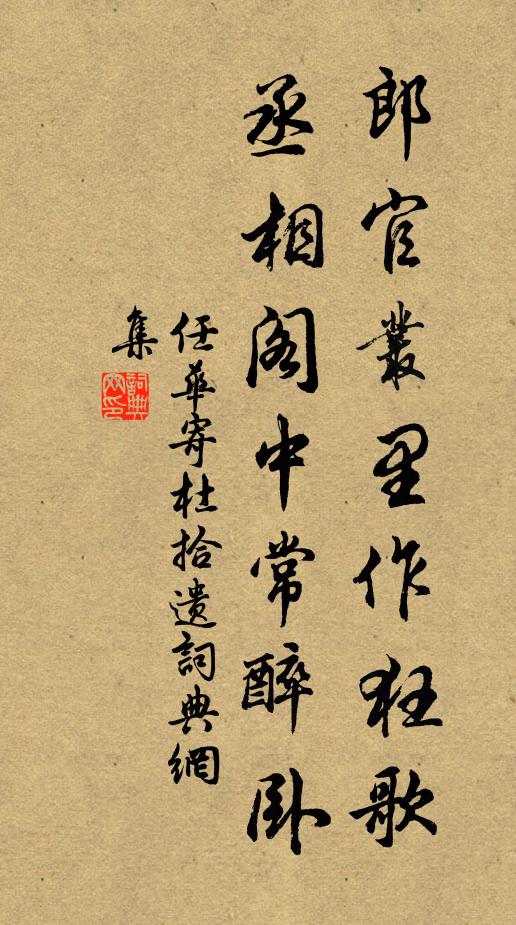 郎官叢里作狂歌
丞相閣中常醉臥
任華寄杜拾遺詞典網
集
詞典網印